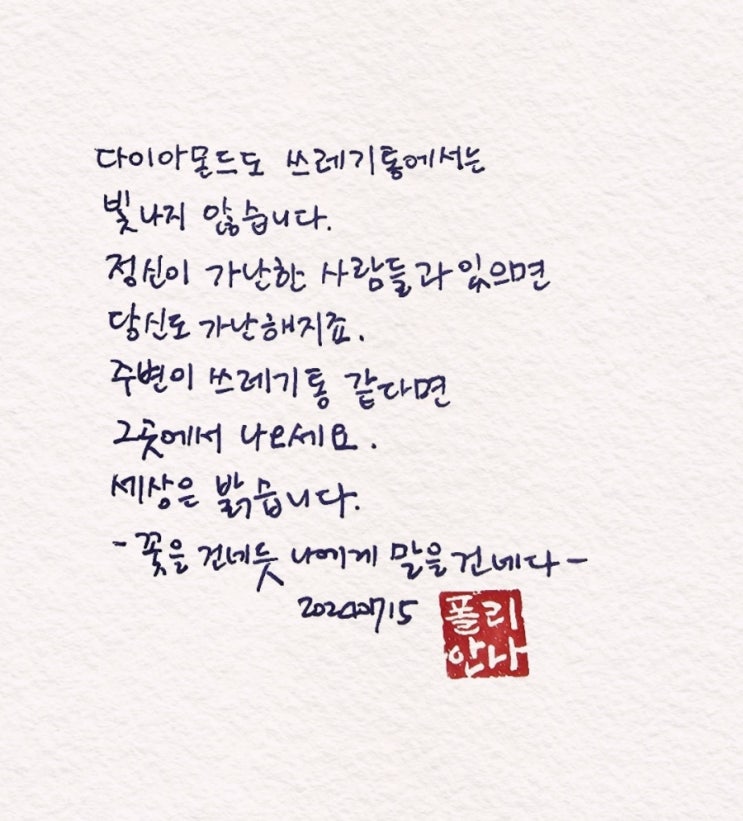 다이아몬드도 쓰레기통에서는
빛나지 않습니다.
정신이 가난한 사람들과 있으면
당신도 가난해지죠.
주변이 쓰레기통 같다면
그곳에서 나오세요.
세상은 밝습니다.
- 꽃을 건네듯 나에게 말을 건네다 -
20240715
폴리
안나